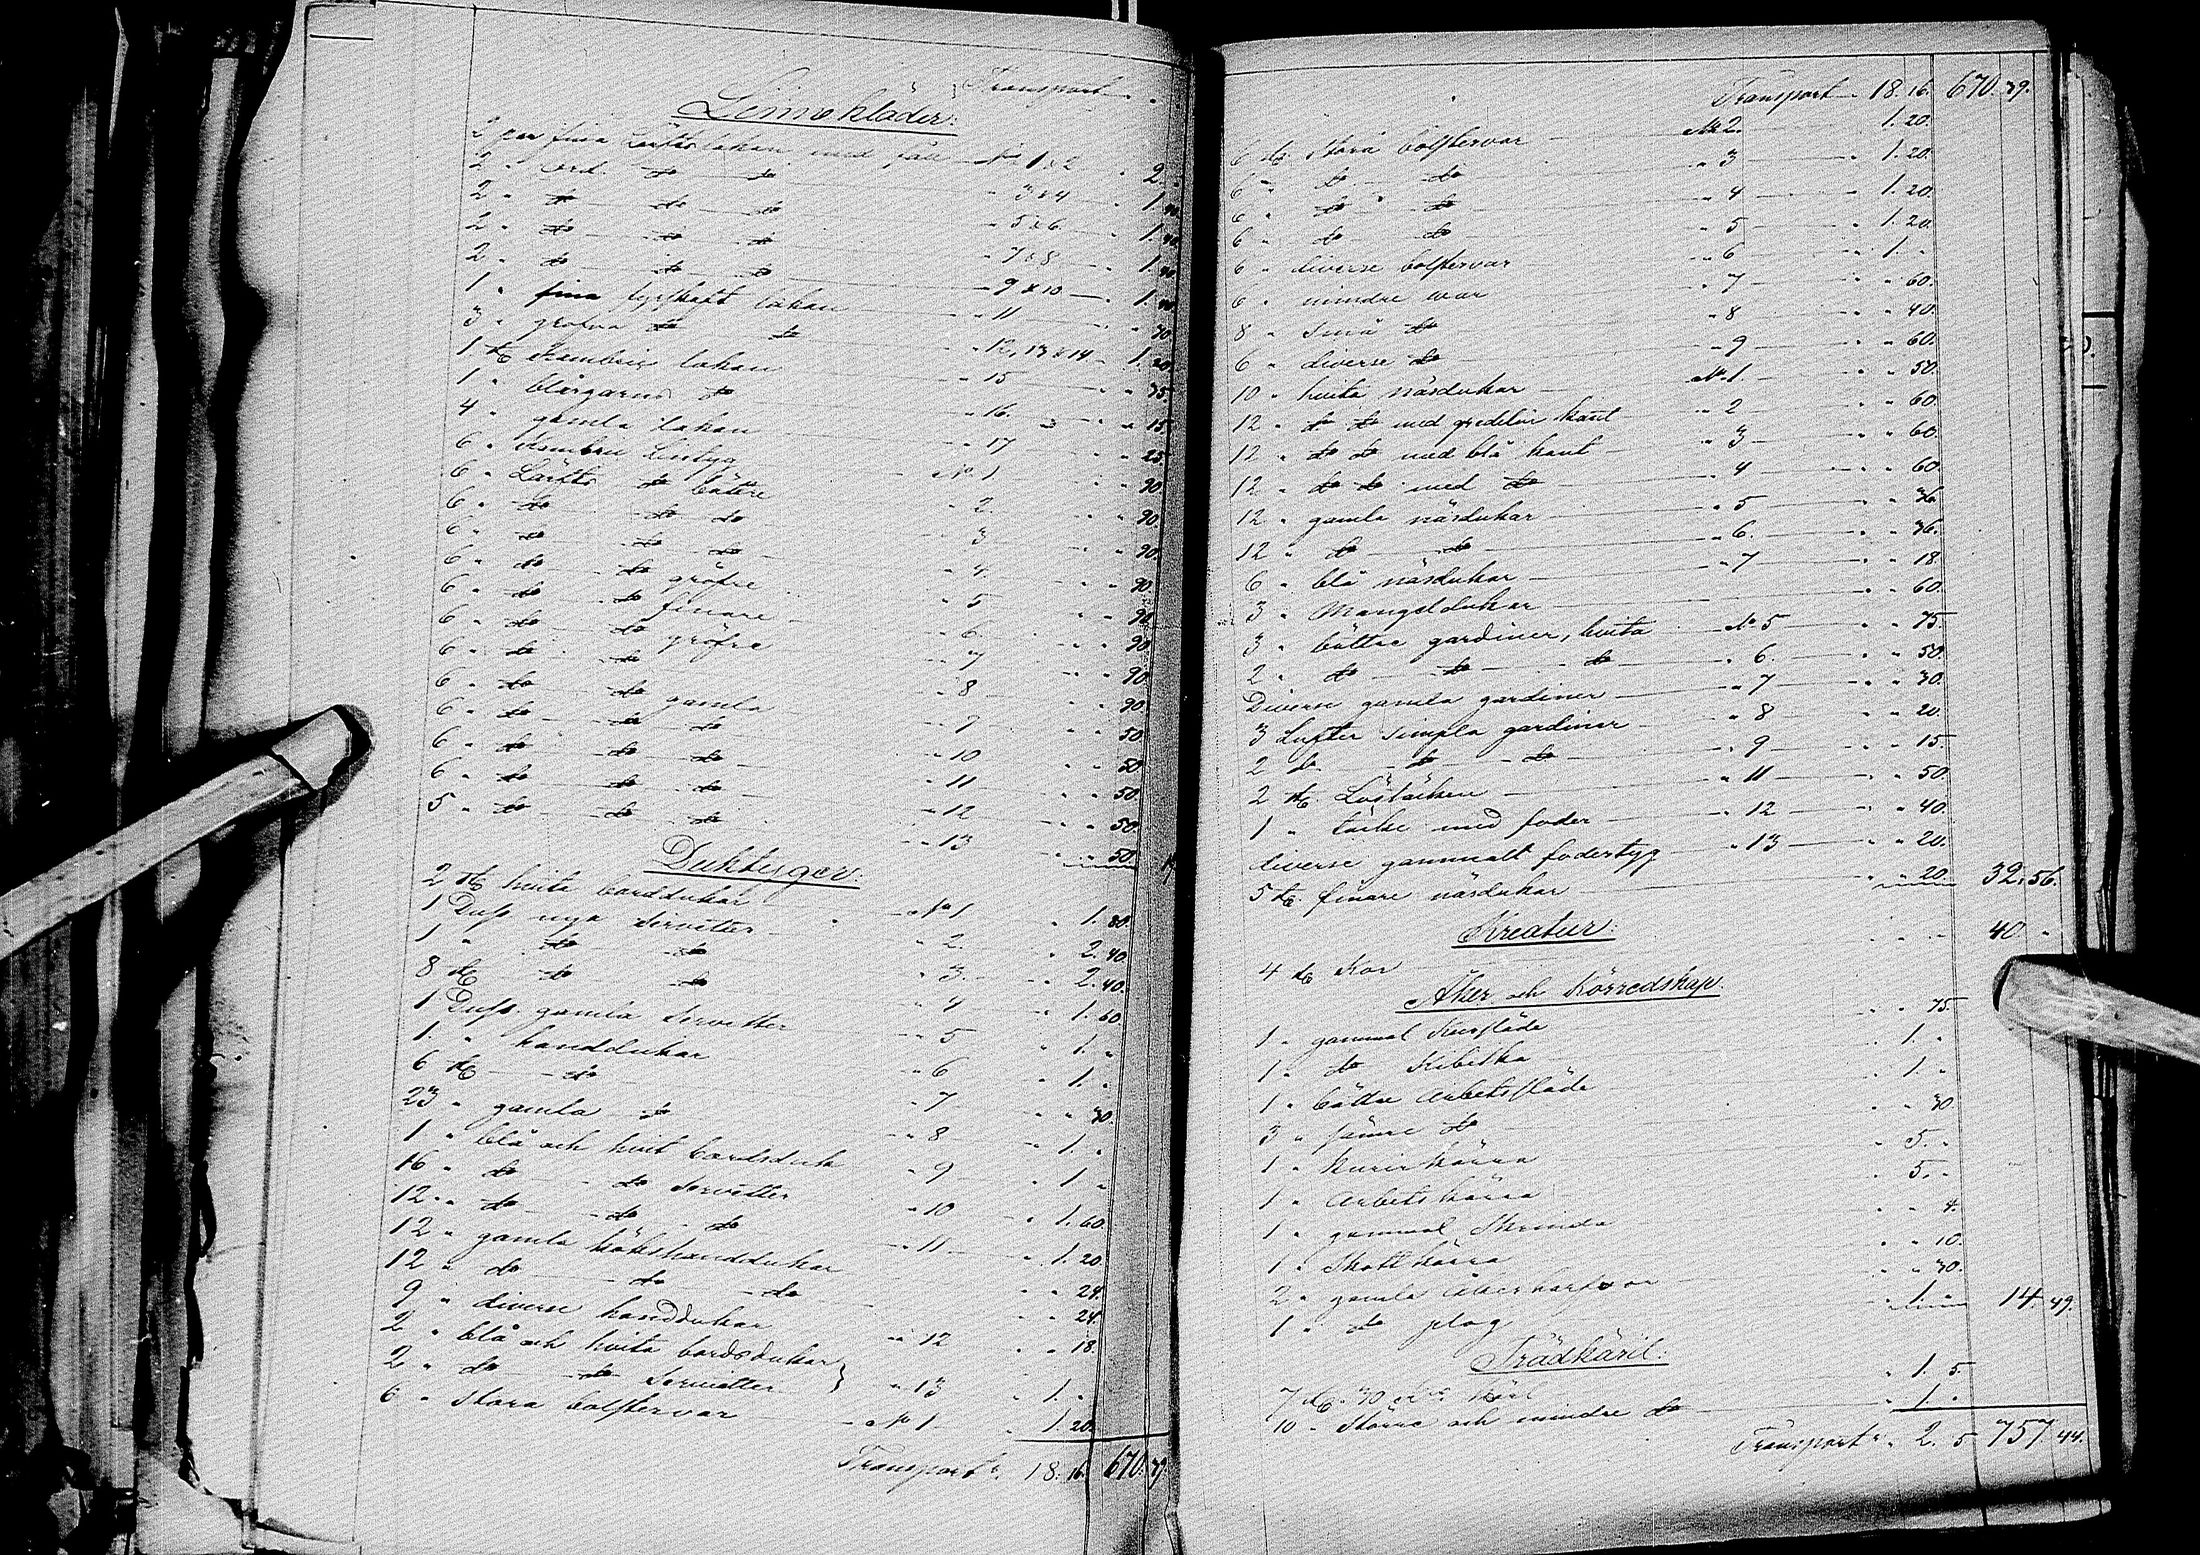 Transport
Linnekläder:
2 par fina Lärftslakan med fåll No 1 & 2 2.
2 " Ord. do do " 3 & 4 1. 40.
2 " do do do " 5 & 6 1. 40.
2 " do do do " 7 & 8 1. 40.
2 " do do do " 9 & 10 1. 40.
1 " fina lakan " 11 70.
3 " grofva do do " 12, 13 & 14 1. 20.
1 st. Kambric lakan " 15 75.
1 " blårgarns do " 16. 15.
4 " gamla lakan " 17 25.
6 " Kambric Lintyg No 1 90.
6 " Lärfts do bättre " 2. 90.
6 " do do do " 3 90.
6 " do do do " 4. 90.
6 " do do gröfre " 5 90.
6 " do do finare " 6. 90.
6 " do do gröfre " 7 90.
6 " do do " 8 90.
6 " do do gamla " 9 50.
6 " do do do " 10 50.
6 " do do do " 11 50.
6 " do do do " 12 50.
5 " do do do " 13 50.
Duktyger:
2 st. hvita borddukar No 1 1. 80.
1 Duss nya servetter " 2. 2. 40.
1 " do do " 3. 2. 40.
8 st. do do " 4 1. 60.
1 Duss. gamla servetter " 5 1. "
1. " handdukar " 6 1. "
6 st. do " 7 30.
23 " gamla do " 8 1. "
1 " blå och hvit bordsduk " 9 1 "
16 " do do servetter " 10 1. 60.
12 " do do do " 11 1. 20.
12 " gamla kökshanddukar 24.
12 " do do do 24.
9 " diverse handdukar " 12 18.
2 " blå och hvita bordsdukar }
2 " do do servetter } " 13 1. "
6 " stora bolstervar No 1 1. 20.
Transport 18. 16. 670. 39.
Transport 18. 16. 670. 39.
6 st. stora bolstervar No 2. 1. 20.
6 " do do " 3 1. 20.
6 " do do " 4 1. 20.
6 " do do " 5 1. 20.
6 " diverse bolstervar " 6 1. "
6 " mindre var " 7 60.
8 " små do " 8 40.
6 " diverse do " 9 60.
10 " hvita näsdukar No 1. 50.
12 " do do med gredelin kant " 2 60.
12 " do do med blå kant " 3 60.
12 " do do med do " 4 60.
12 " gamla näsdukar " 5 36.
12 " do do " 6. 36.
6 " blå näsdukar " 7 18.
3 " Mangeldukar 60.
3 " bättre gardiner, hvita No 5 75.
2 " do do do " 6. 50.
Diverse gamla gardiner " 7 30.
3 Lufter simpla gardiner " 8 20.
2 do do do " 9 15.
2 st. " 11 50.
1 " täcke med foder " 12 40.
diverse gammalt fodertyg " 13 20.
5 st. finare näsdukar 20. 32. 56.
Kreatur:
4 st. Kor 40. "
Åker och Körredskap.
1 " gammal 75.
1 " do Kibitka 1. "
1 " bättre Arbetssläde 1. "
3 " sämre do 30
1 " Kurirkärra 5. "
1 " Arbetskärra 5. "
1 " gammal Skrinda 4.
1 " Skottkärra 10.
2 " gamla 30.
1 " do plog 1. " 14. 49.
Trädkäril:
7 st. 30 1. 5.
10 " större och mindre do 1. "
Transport 2. 5 757. 44.